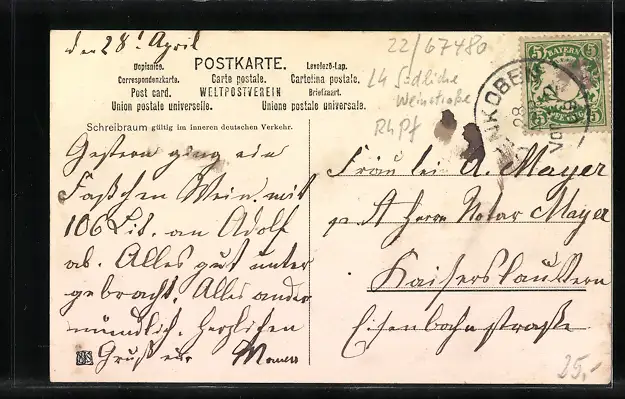 den 28! April
22/67480
POSTKARTE.
Dopisnice. Levelező-Lap.
Correspondenzkarte. Carte postale. Cartolina postale.
Post card. WELTPOSTVEREIN Briefkaart.
Union postale universelle. Unione postale universale.
L4 Südliche
Weinstraße
RhPf
5 BAYERN 5
5 PFENNIG 5
28
VOR
Schreibraum gültig im inneren deutschen Verkehr.
Gestern ging ein
Fäßchen Wein mit
106 Lit. an Adolf
ab. Alles gut unter
gebracht. Alles andere
mündlich. Herzlichen
Gruß
Fräulein A. Mayer
Herrn Notar Mayer
Kaiserslautern
Eisenbahnstraße
25,-